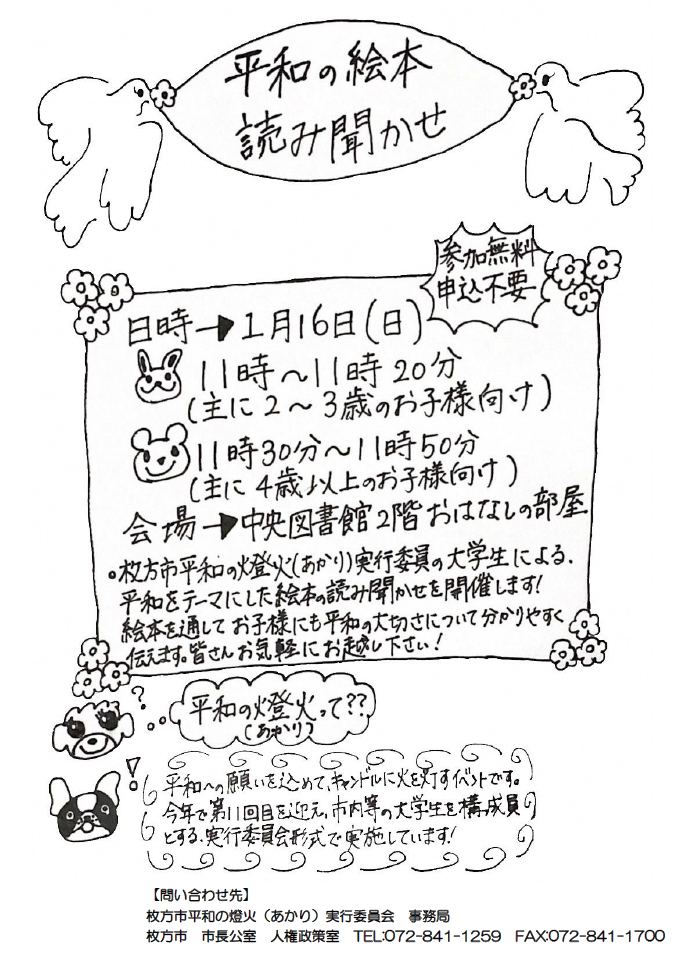 平和の絵本
読み聞かせ
参加無料
申込不要
日時→1月16日(日)
11時～11時20分
(主に2～3歳のお子様向け)
11時30分～11時50分
(主に4歳以上のお子様向け)
会場→中央図書館2階おはなしの部屋
。枚方市平和の燈火(あかり)実行委員の大学生による、
平和をテーマにした絵本の読み聞かせを開催します!
絵本を通してお子様にも平和の大切さについて分かりやすく
伝えます。皆さんお気軽にお越し下さい!
?
平和の燈火って??
(あかり)
!
平和への願いを込めて、キャンドルに火を灯すイベントです。
今年で第11回目を迎え、市内等の大学生を構成員
とする、実行委員会形式で実施しています!
【問い合わせ先】
枚方市平和の燈火（あかり）実行委員会　事務局
枚方市　市長公室　人権政策室　TEL:072-841-1259　FAX:072-841-1700